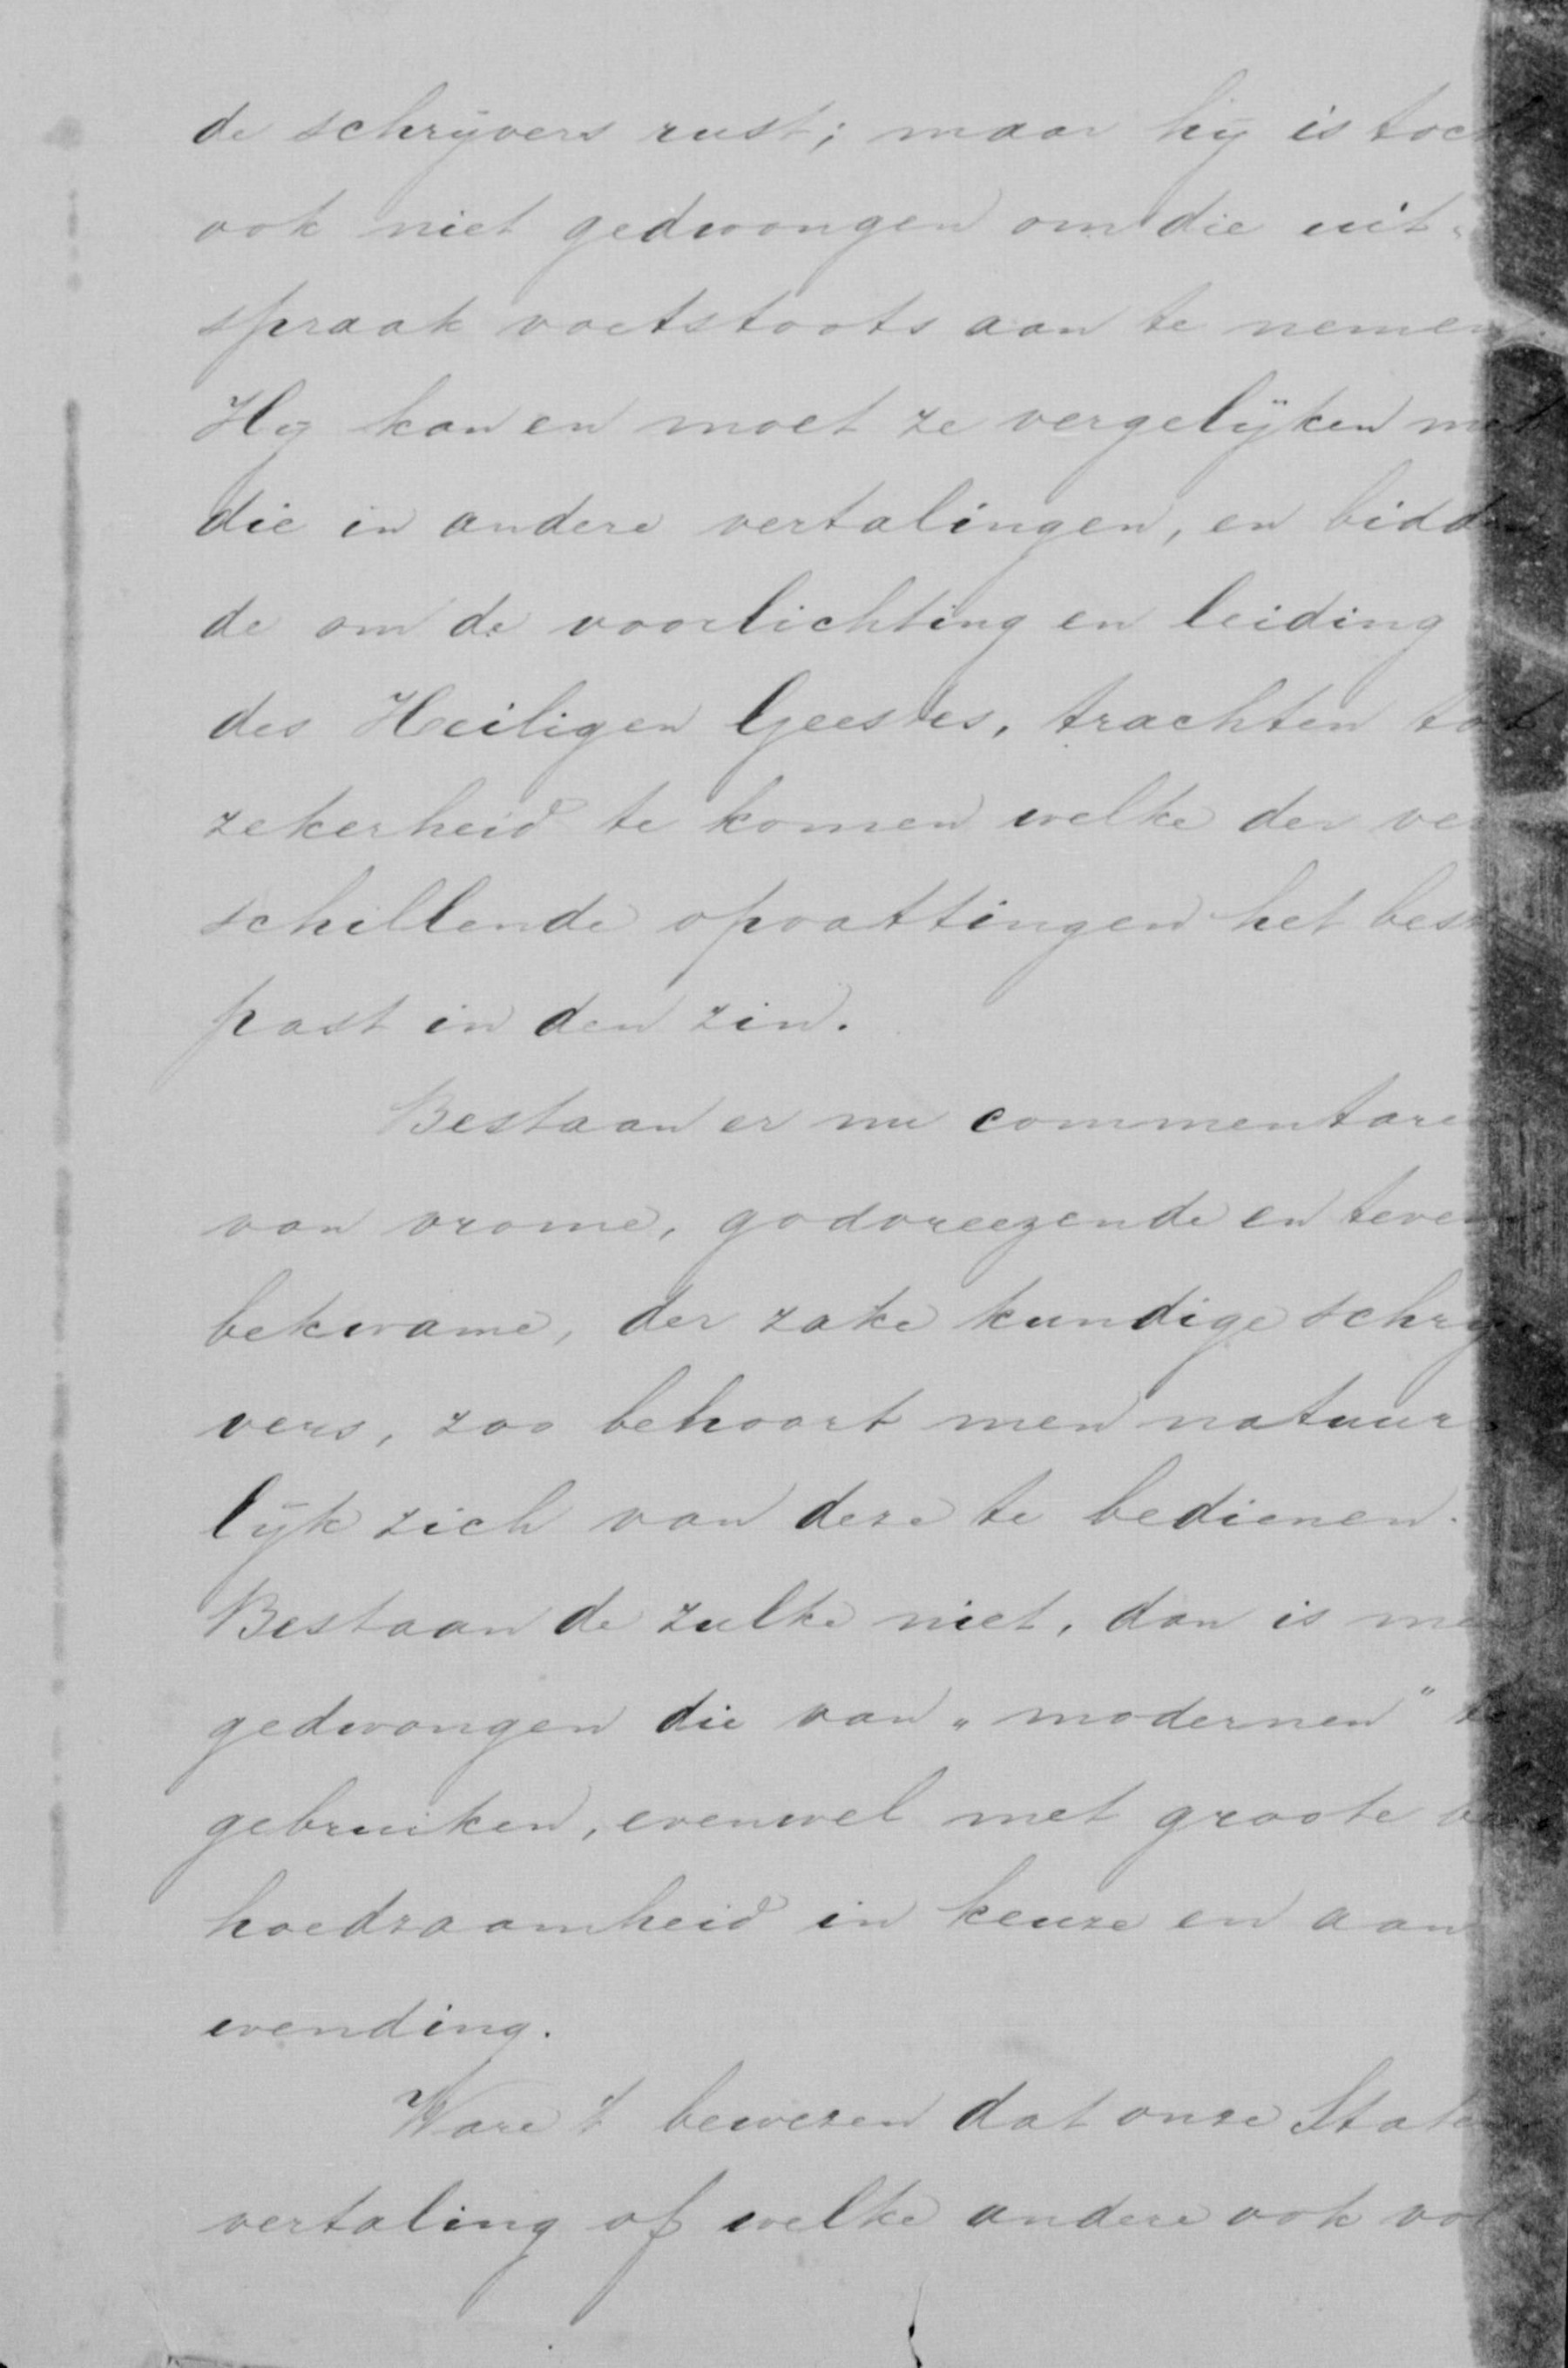 de schrijvers rust; maar hij is toch
ook niet gedwongen om die uit-
spraak voetstoots aan te nemen.
Hij kan en moet ze vergelijken met
die in andere vertalingen, en bidden
de om de voorlichting en leiding
des Heiligen Geestes, trachten tot
zekerheid te komen welke der ver
schillende opvattingen het best
past in den zin.
Bestaan er nu commentaren
van vrome, godvreezende en tevens
bekwame, der zake kundige schrij-
vers, zoo behoort men natuur-
lijk zich van deze te bedienen.
Bestaan de zulke niet, dan is men
gedwongen die van „modernen" te
gebruiken, evenwel met groote be
hoedzaamheid in keuze en aan
wending.
Ware 't bewezen dat onze Staten
vertaling of welke andere ook vol